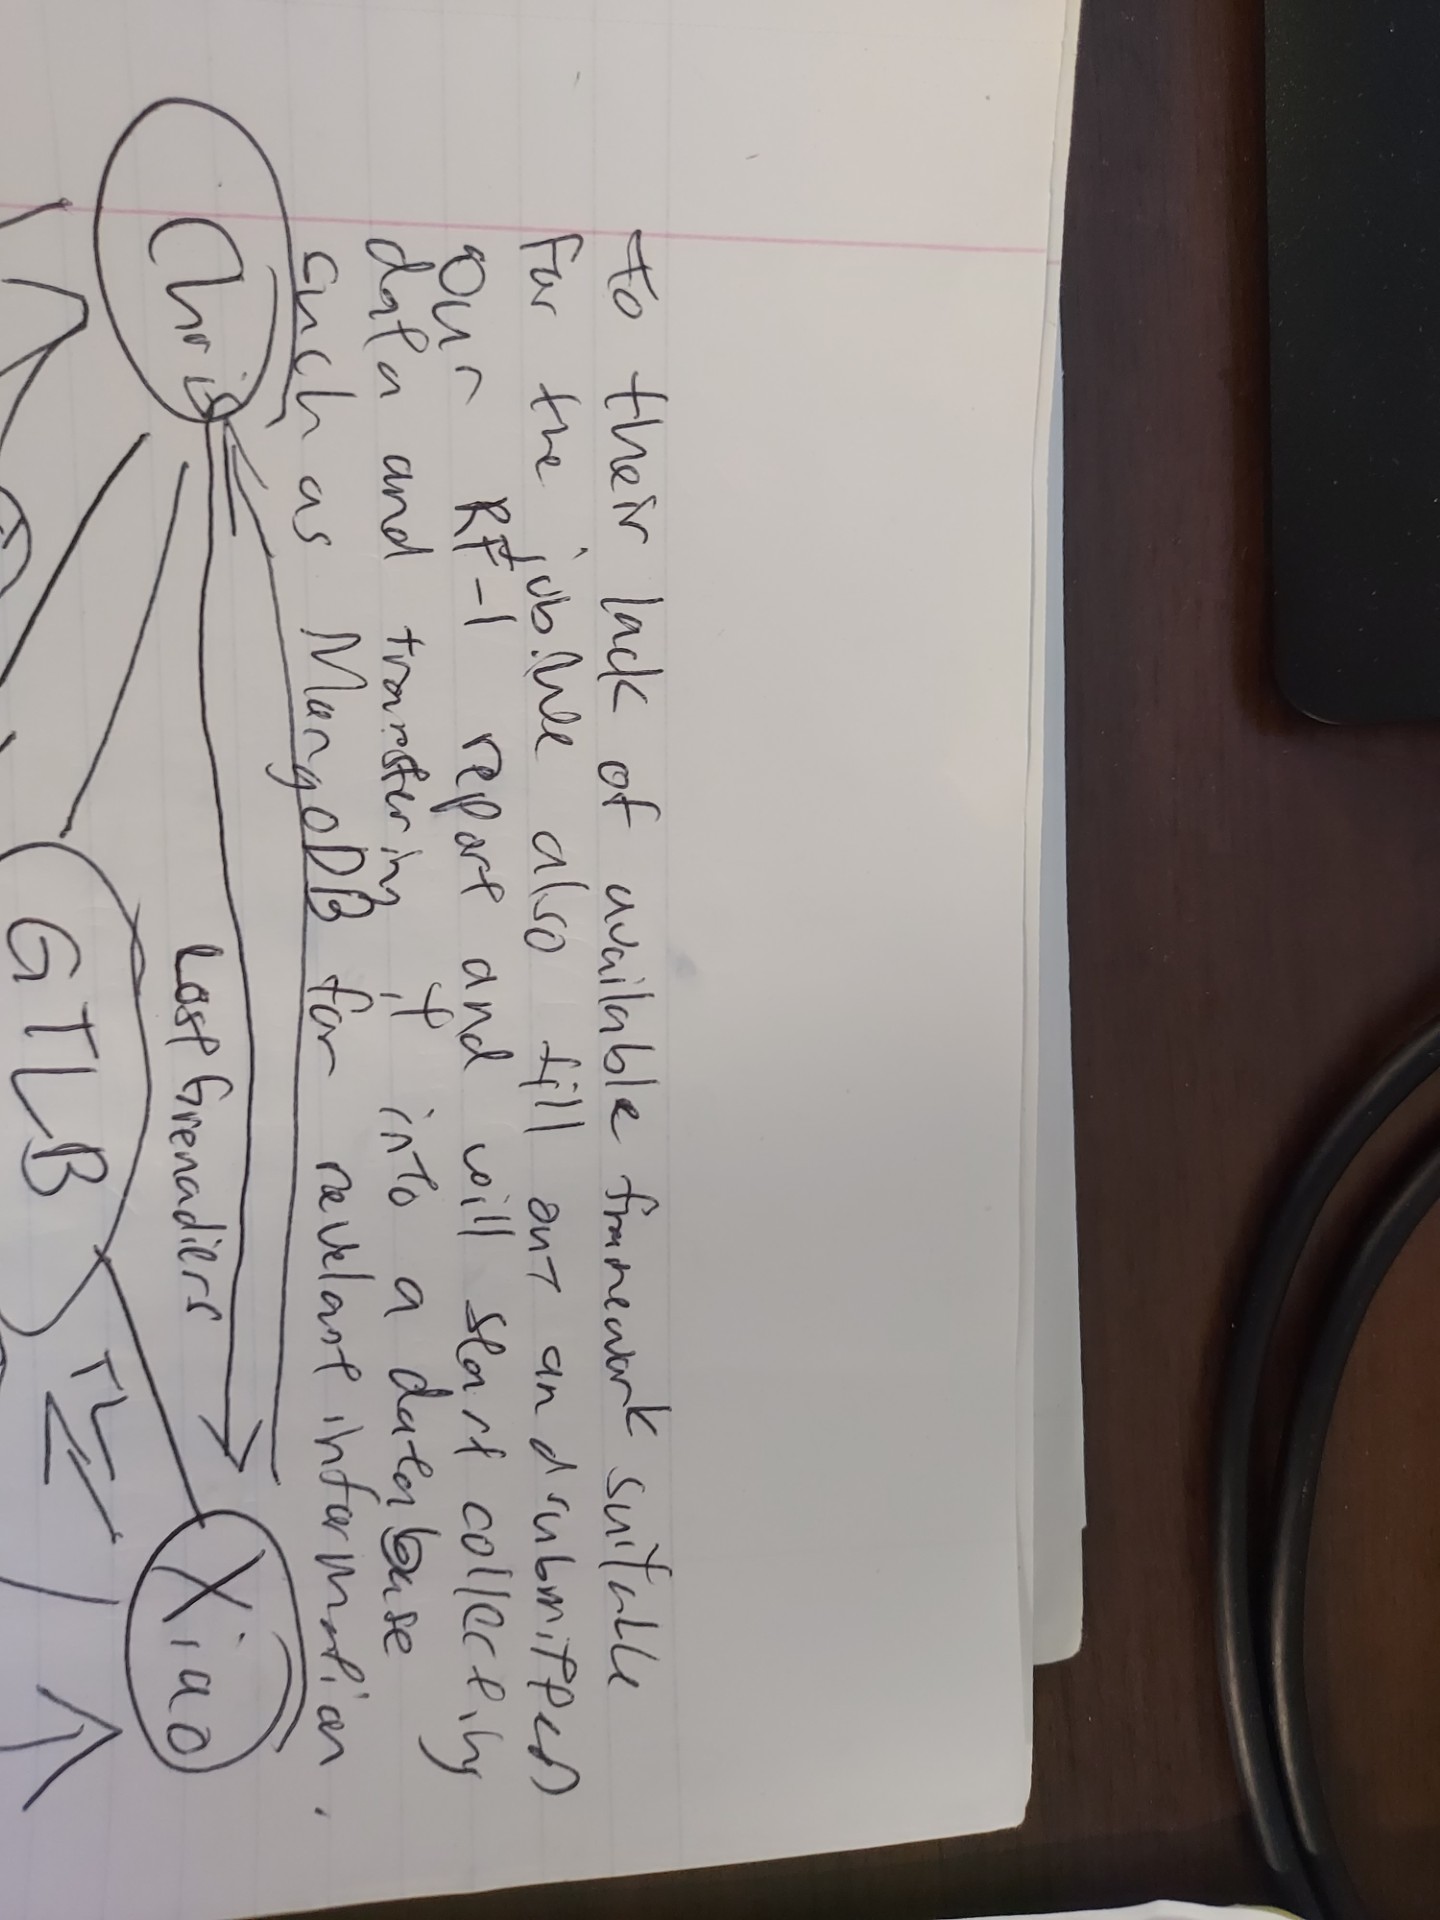 to their lack of available framework suitable
for the job. We also fill out and submitted
our RF-1 report and will start collectily
data and transfering it into a database
such as MongoDB for revelant information.
Chris
Xiao
Lost Grenadiers
GTLB
TL